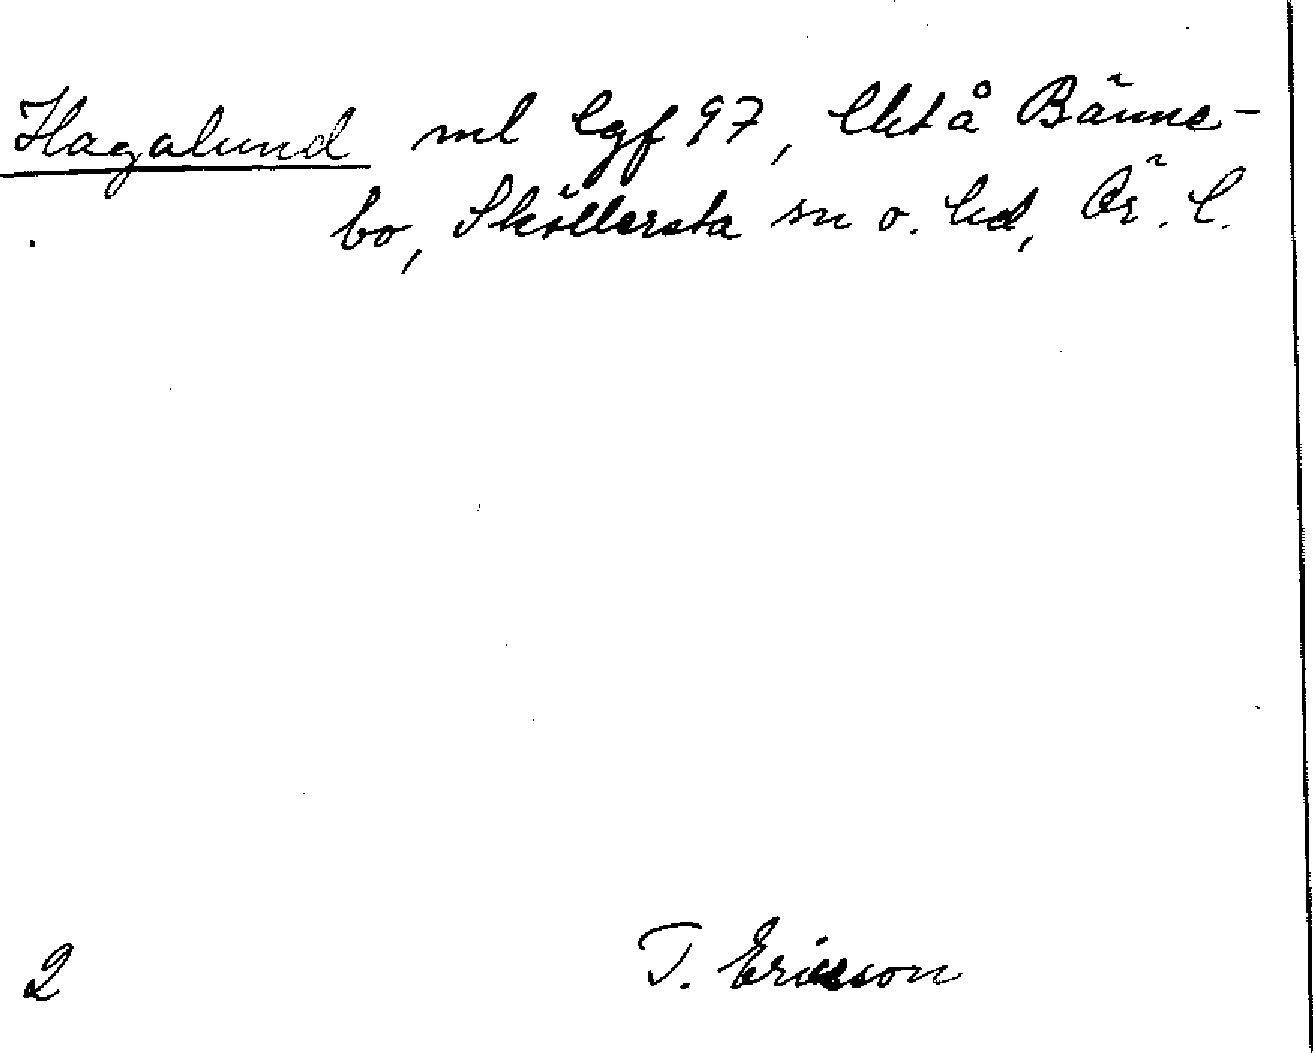 Hagalund ml lgf 97, lht å Bänne-
bo, Sköllersta sn o. hd, Ör. l.
2 T. Ericson